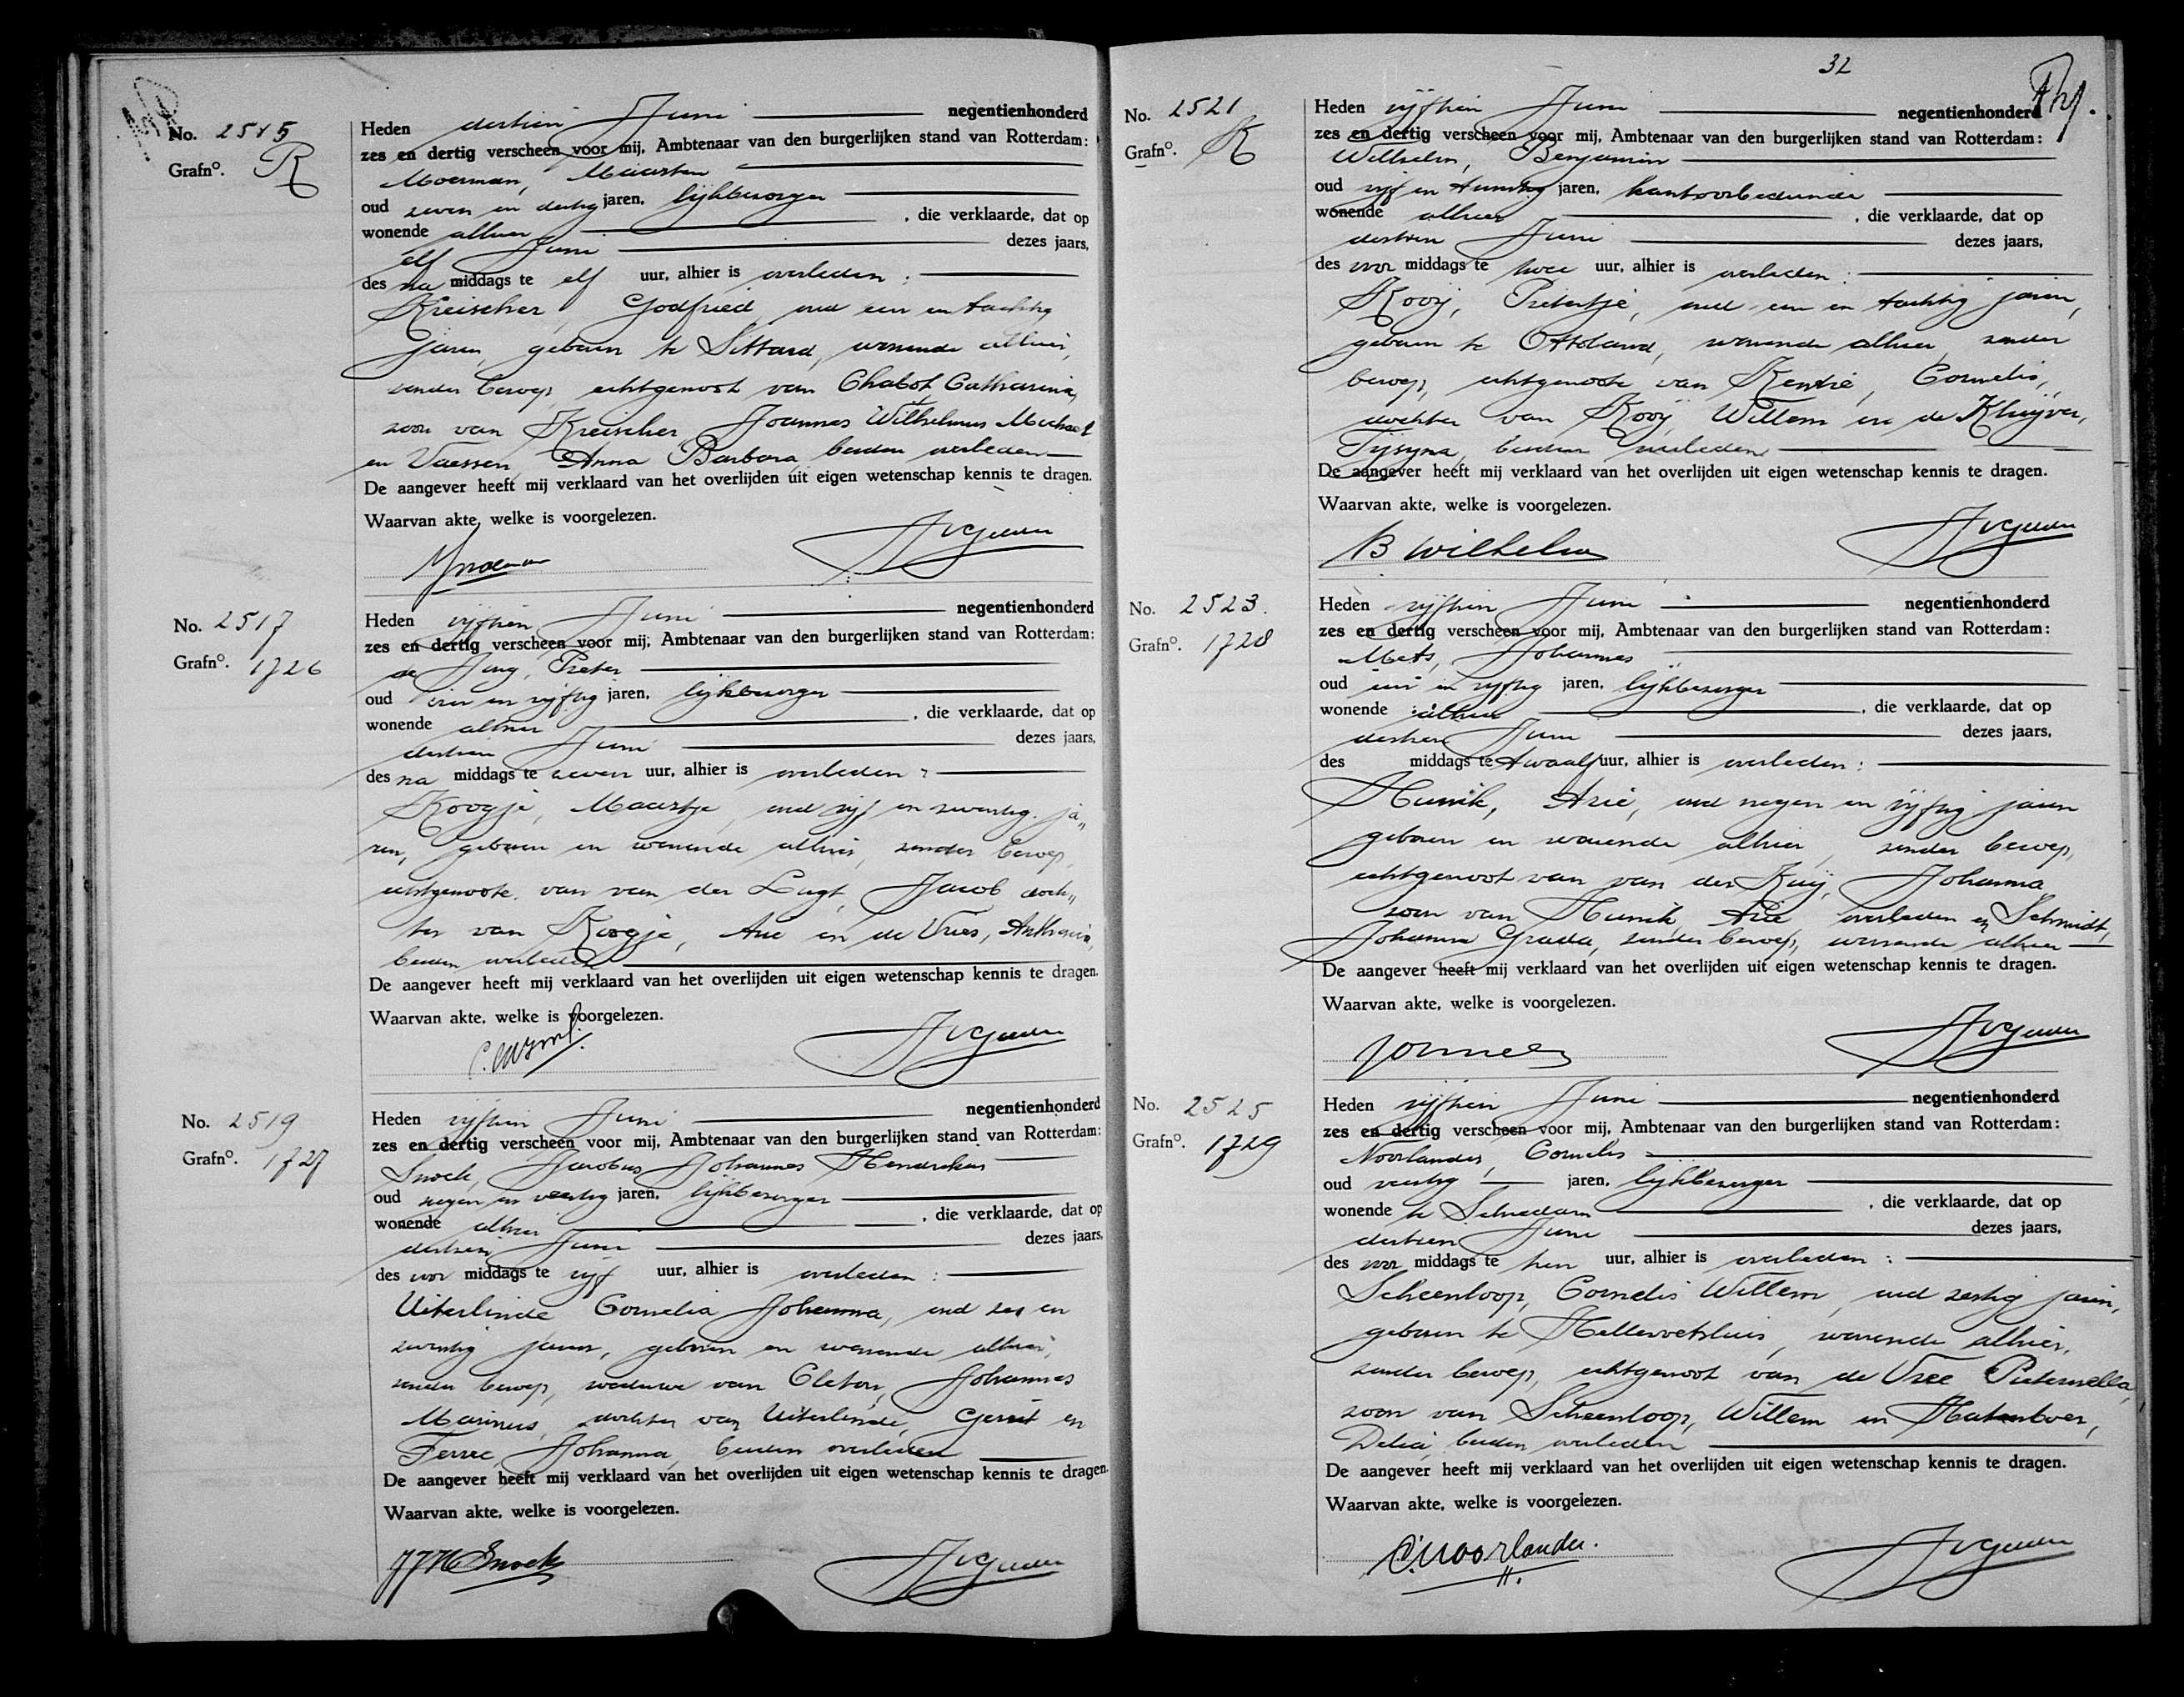 No. 2515
Grafno. R
Heden dertien Juni negentienhonderd
zes en dertig verscheen voor mij, Ambtenaar van den burgerlijken stand van Rotterdam:
Moerman, Maarten
oud zeven en dertig jaren, lijkbezorger
wonende alhier, die verklaarde, dat op
elf Juni dezes jaars,
des na middags te elf uur, alhier is overleden:
Kreischer, Godfried, oud een en tachtig
jaren, geboren te Sittard, wonende alhier,
zonder beroep, echtgenoot van Chabot, Catharina,
zoon van Kreischer, Joannes Wilhelmus Michael
en Vaessen, Anna Barbara, beiden overleden
De aangever heeft mij verklaard van het overlijden uit eigen wetenschap kennis te dragen.
Waarvan akte, welke is voorgelezen.
No. 2517
Grafno. 1726
Heden vijftien Juni negentienhonderd
zes en dertig verscheen voor mij, Ambtenaar van den burgerlijken stand van Rotterdam:
de Jong, Pieter
oud vijftig jaren, lijkbezorger
wonende alhier, die verklaarde, dat op
dertien Juni dezes jaars,
des na middags te zeven uur, alhier is overleden:
Koogje, Maartje, oud vijf en zeventig ja„
ren, geboren en wonende alhier, zonder beroep,
echtgenoote van van der Lugt, Jacob, doch„
ter van Koogje, Arie en de Vries, Anthonia,
beiden overleden
De aangever heeft mij verklaard van het overlijden uit eigen wetenschap kennis te dragen.
Waarvan akte, welke is voorgelezen.
No. 2519
Grafno. 1727
Heden vijftien Juni negentienhonderd
zes en dertig verscheen voor mij, Ambtenaar van den burgerlijken stand van Rotterdam:
Snoek, Jacobus Johannes Hendrikus
oud negen en veertig jaren, lijkbezorger
wonende alhier, die verklaarde, dat op
dertien Juni dezes jaars,
des voor middags te vijf uur, alhier is overleden:
Uiterlinde Cornelia Johanna, oud zes en
zeventig jaren, geboren en wonende alhier,
zonder beroep, weduwe van Cleton, Johannes
Marinus, dochter van Uiterlinde, Gerrit en
Ferree, Johanna, beiden overleden
De aangever heeft mij verklaard van het overlijden uit eigen wetenschap kennis te dragen.
Waarvan akte, welke is voorgelezen.
JJH Snoek
32
No. 2521
Grafno. R
Heden vijftien Juni negentienhonderd
zes en dertig verscheen voor mij, Ambtenaar van den burgerlijken stand van Rotterdam:
Wilhelm, Benjamin
oud vijf en twintig jaren, kantoorbediende
wonende alhier, die verklaarde, dat op
dertien Juni dezes jaars,
des voor middags te twee uur, alhier is overleden:
Kooij, Pietertje, oud een en tachtig jaren,
geboren te Ottoland, wonende alhier zonder
beroep, echtgenoote van Kentie, Cornelis,
dochter van Kooij, Willem en de Kluijver,
Tijsyna, beiden overleden
De aangever heeft mij verklaard van het overlijden uit eigen wetenschap kennis te dragen.
Waarvan akte, welke is voorgelezen.
B Wilhelm
No. 2523.
Grafno. 1728
Heden vijftien Juni negentienhonderd
zes en dertig verscheen voor mij, Ambtenaar van den burgerlijken stand van Rotterdam:
Mets, Johannes
oud een en vijftig jaren, lijkbezorger
wonende alhier, die verklaarde, dat op
dertien Juni dezes jaars,
des middags te twaalf uur, alhier is overleden:
Munik, Arie, oud negen en vijftig jaren
geboren en wonende alhier, zonder beroep,
echtgenoot van van der Kuij, Johanna,
zoon van Munik, Arie overleden en Schmidt,
Johanna Grada, zonder beroep, wonende alhier
De aangever heeft mij verklaard van het overlijden uit eigen wetenschap kennis te dragen.
Waarvan akte, welke is voorgelezen.
No. 2525
Grafno. 1729
Heden vijftien Juni negentienhonderd
zes en dertig verscheen voor mij, Ambtenaar van den burgerlijken stand van Rotterdam:
Noorlander, Cornelis
oud veertig jaren, lijkbezorger
wonende te Schiedam, die verklaarde, dat op
dertien Juni dezes jaars,
des voor middags te tien uur, alhier is overleden:
Scheenloop, Cornelis Willem, oud zestig jaren,
geboren te Hellevoetsluis, wonende alhier,
zonder beroep, echtgenoot van de Vree Pieternella,
zoon van Scheenloop, Willem en Hatenboer,
Delia, beiden overleden
De aangever heeft mij verklaard van het overlijden uit eigen wetenschap kennis te dragen.
Waarvan akte, welke is voorgelezen.
C. Noorlander.